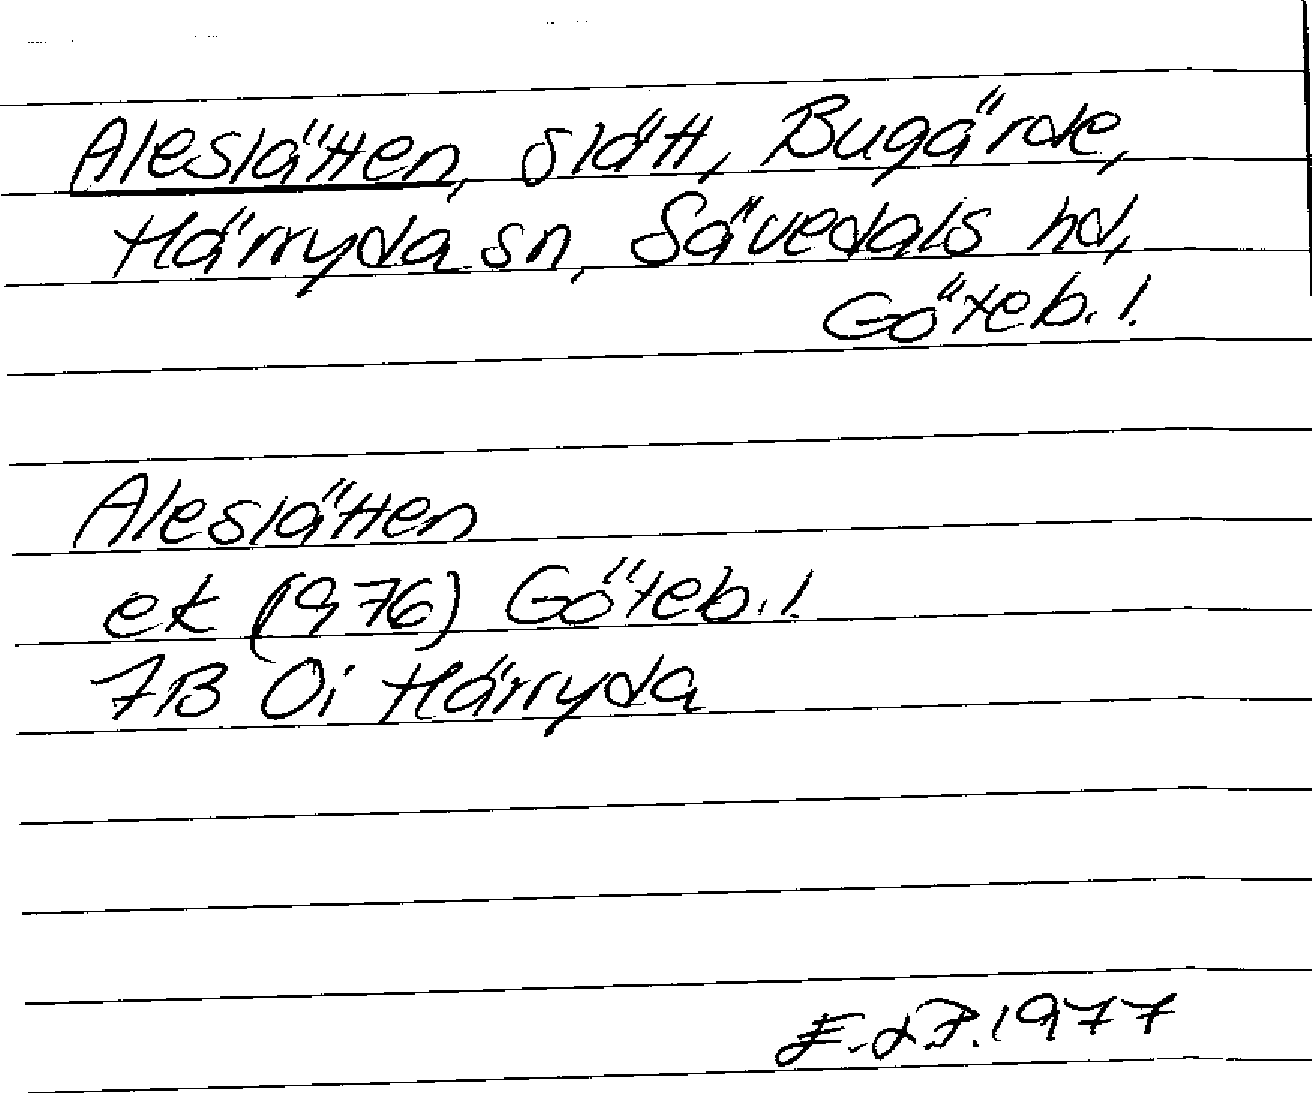 Aleslätten, slätt, Bugärde,
Härryda sn, Sävedals hd,
Göteb. l.
Aleslätten
ek (1976) Göteb. l.
7B 0i Härryda
1977